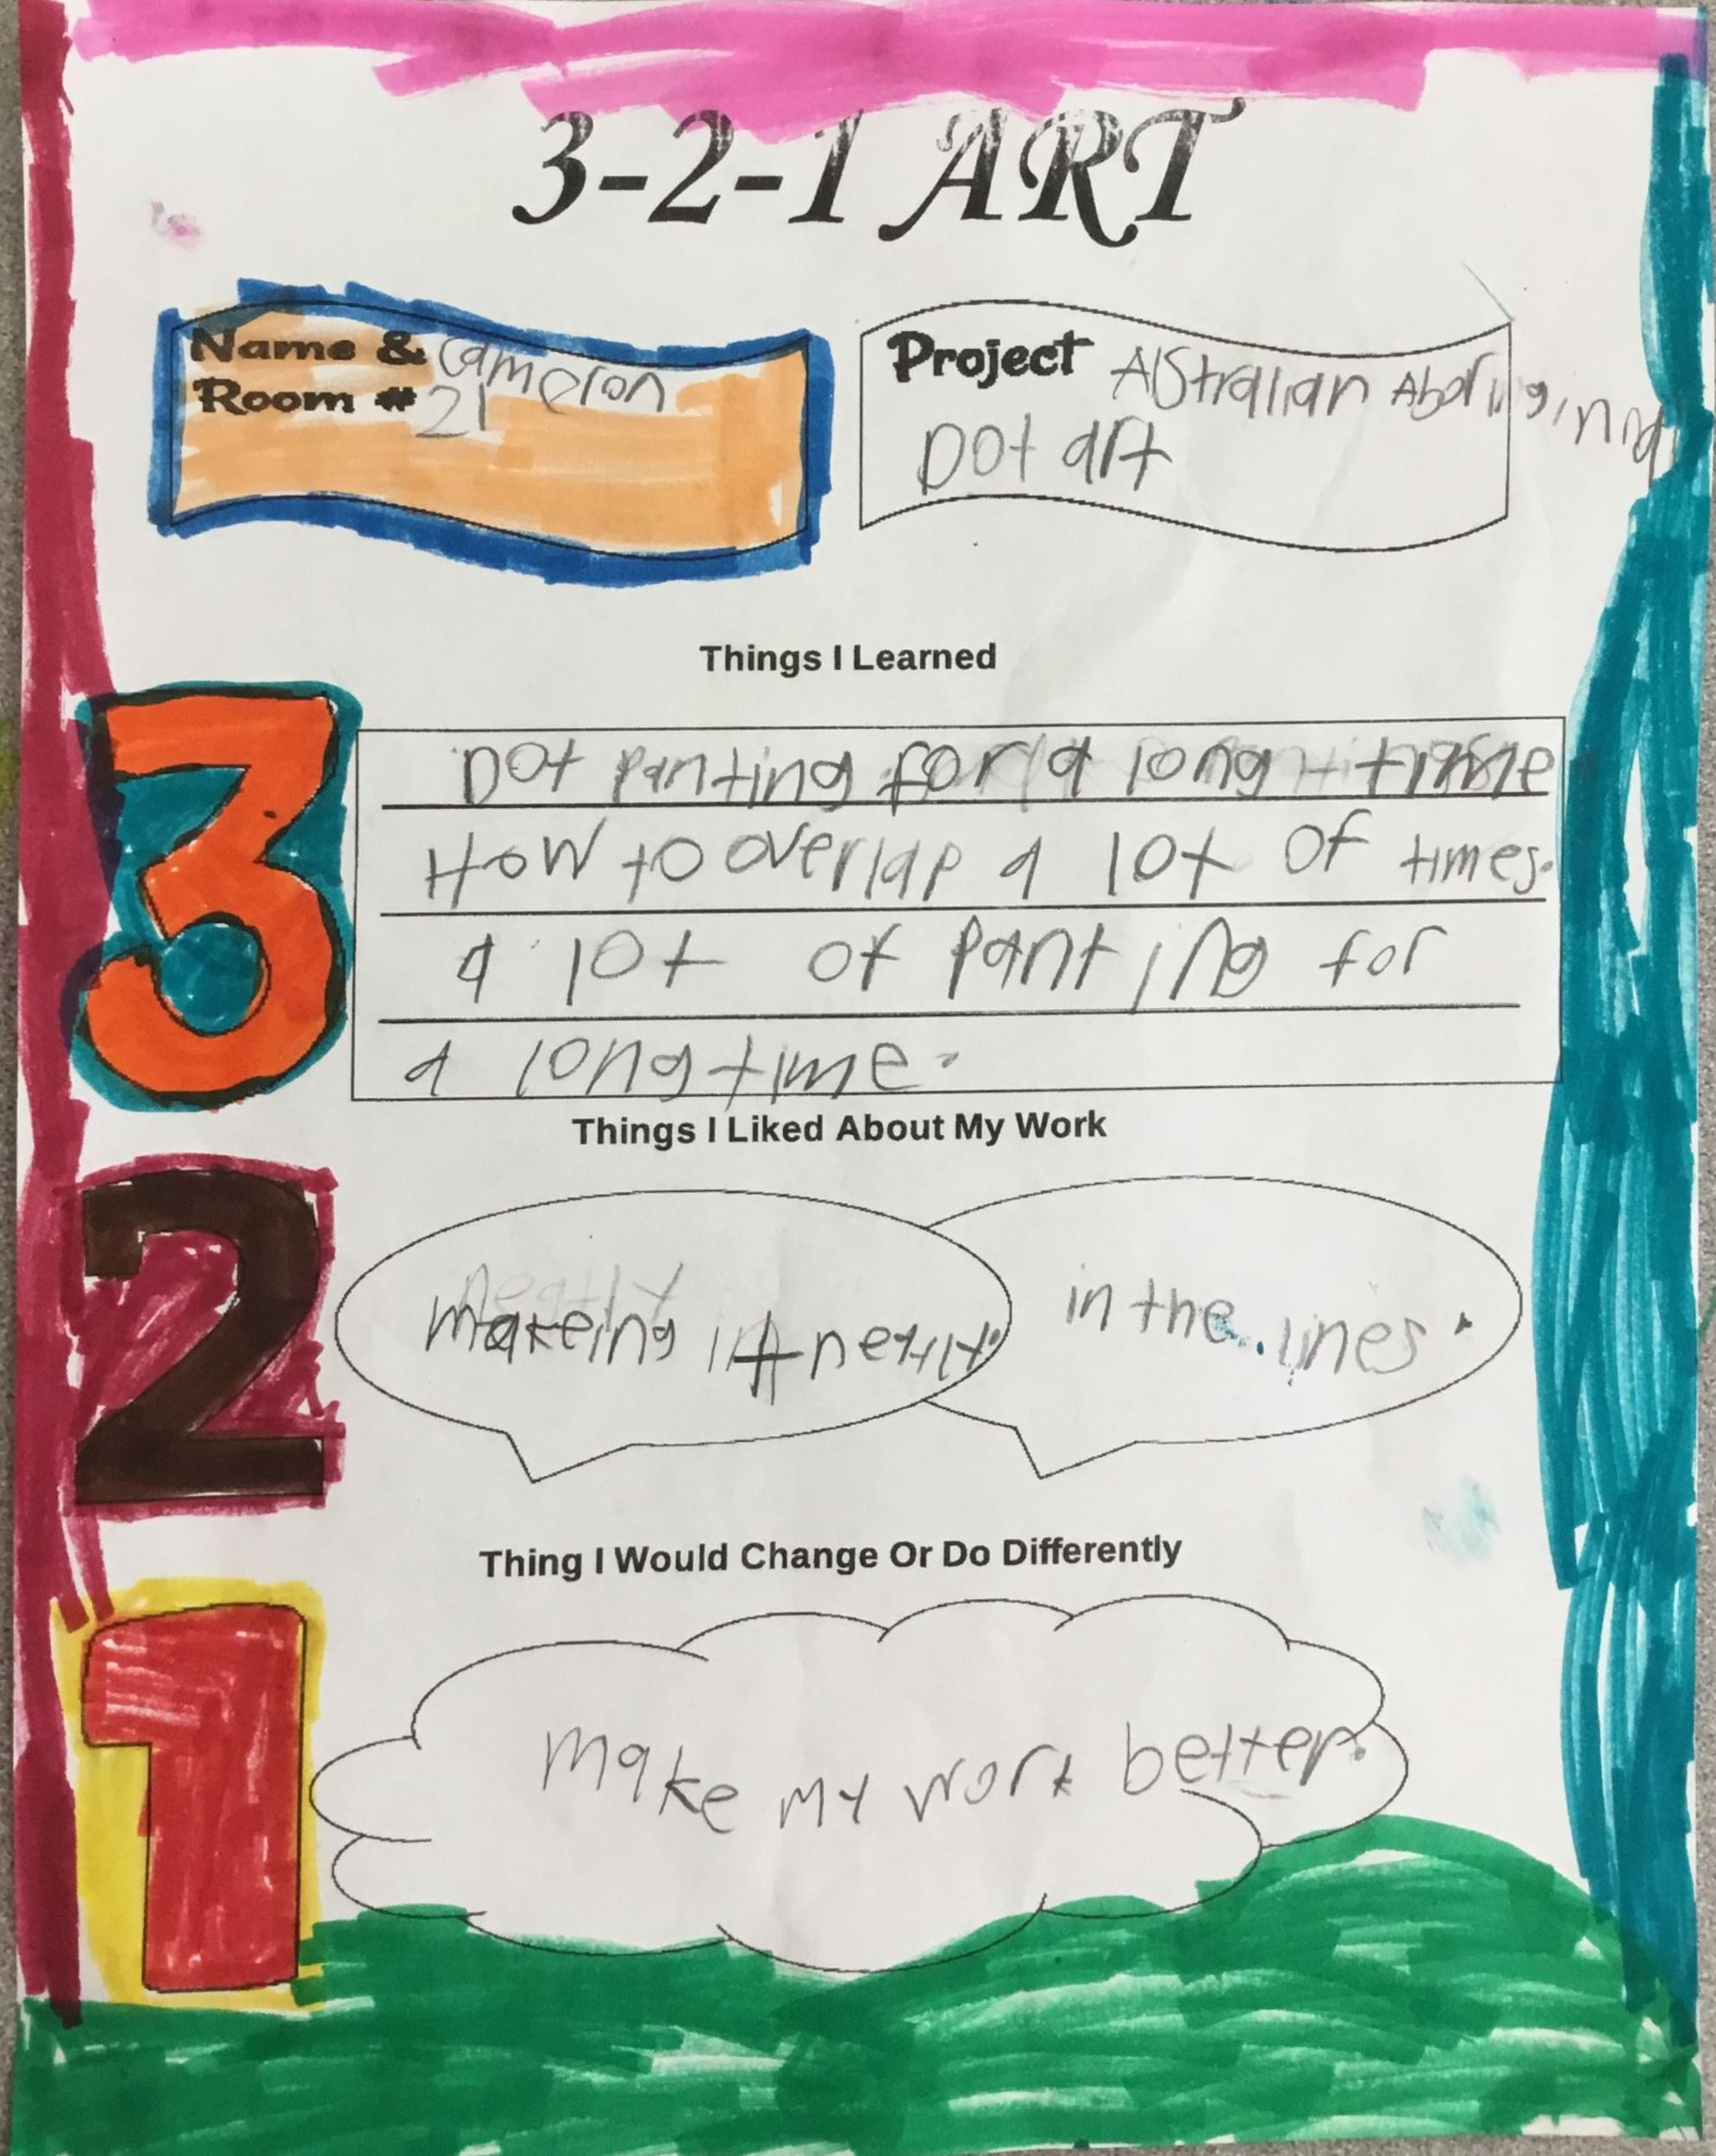 3-2-1 ART
Name & Cameron
Room # 21
Project AUStralian Aboriginal
Dot art
Things I Learned
3
Dot panting for a long time
How to overlap a lot of times.
a lot of panting for
a long time.
Things I Liked About My Work
2
makeing it
in the lines.
Thing I Would Change Or Do Differently
1
make my work better.